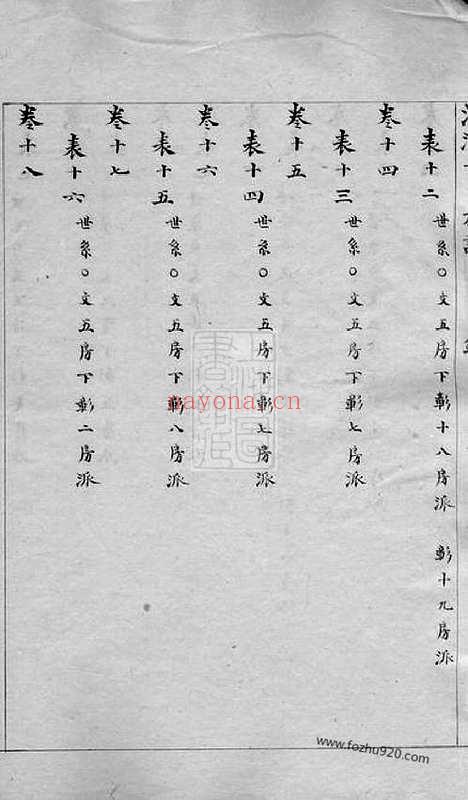 表十二 世系○文五房下彰十八房派 彰十九房派
卷十四
表十三 世系○文五房下彰七房派
卷十五
表十四 世系○文五房下彰七房派
卷十六
表十五 世系○文五房下彰八房派
卷十七
表十六 世系○文五房下彰二房派
卷十八
nayona.cn
www.fozhu920.com